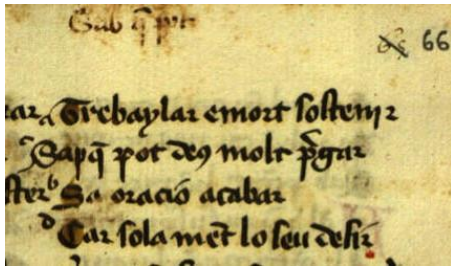 Sab q̃ pot
66
ear a Trebaylar e mort sostenir
c Sapq̃ pot deꝯ molt p̃gar
ster b Sa oracio acabar
d Car sola met̃ lo seu desir